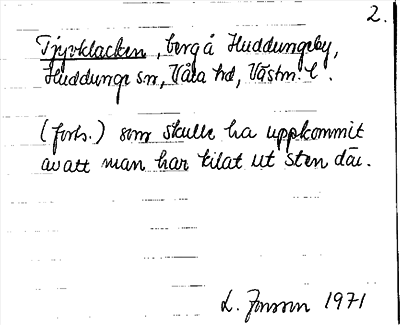 2.
Tjyvklacken, berg å Huddungeby,
Huddunge sn, Våla hd, Västm. l.
(forts.) som skulle ha uppkommit
av att man har kilat ut sten där.
L. Jonsson 1971